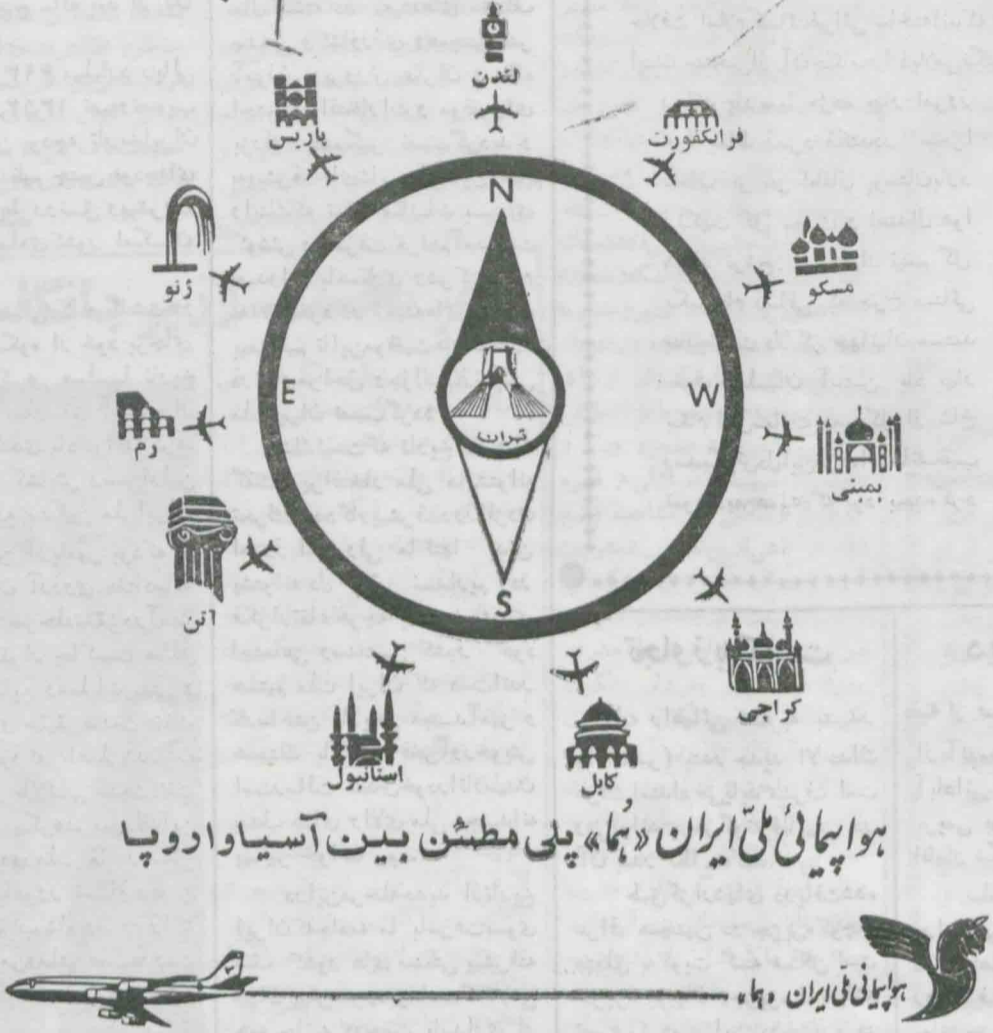 لندن
پاریس
فرانکفورت
N
ژنو
مسکو
E
W
تهران
رم
بمبئی
آتن
S
کراچی
استانبول
کابل
هواپیمائی ملّی ایران «هُما» پلی مطمئن بین آسیا و اروپا
هواپیمائی ملی ایران «هما»